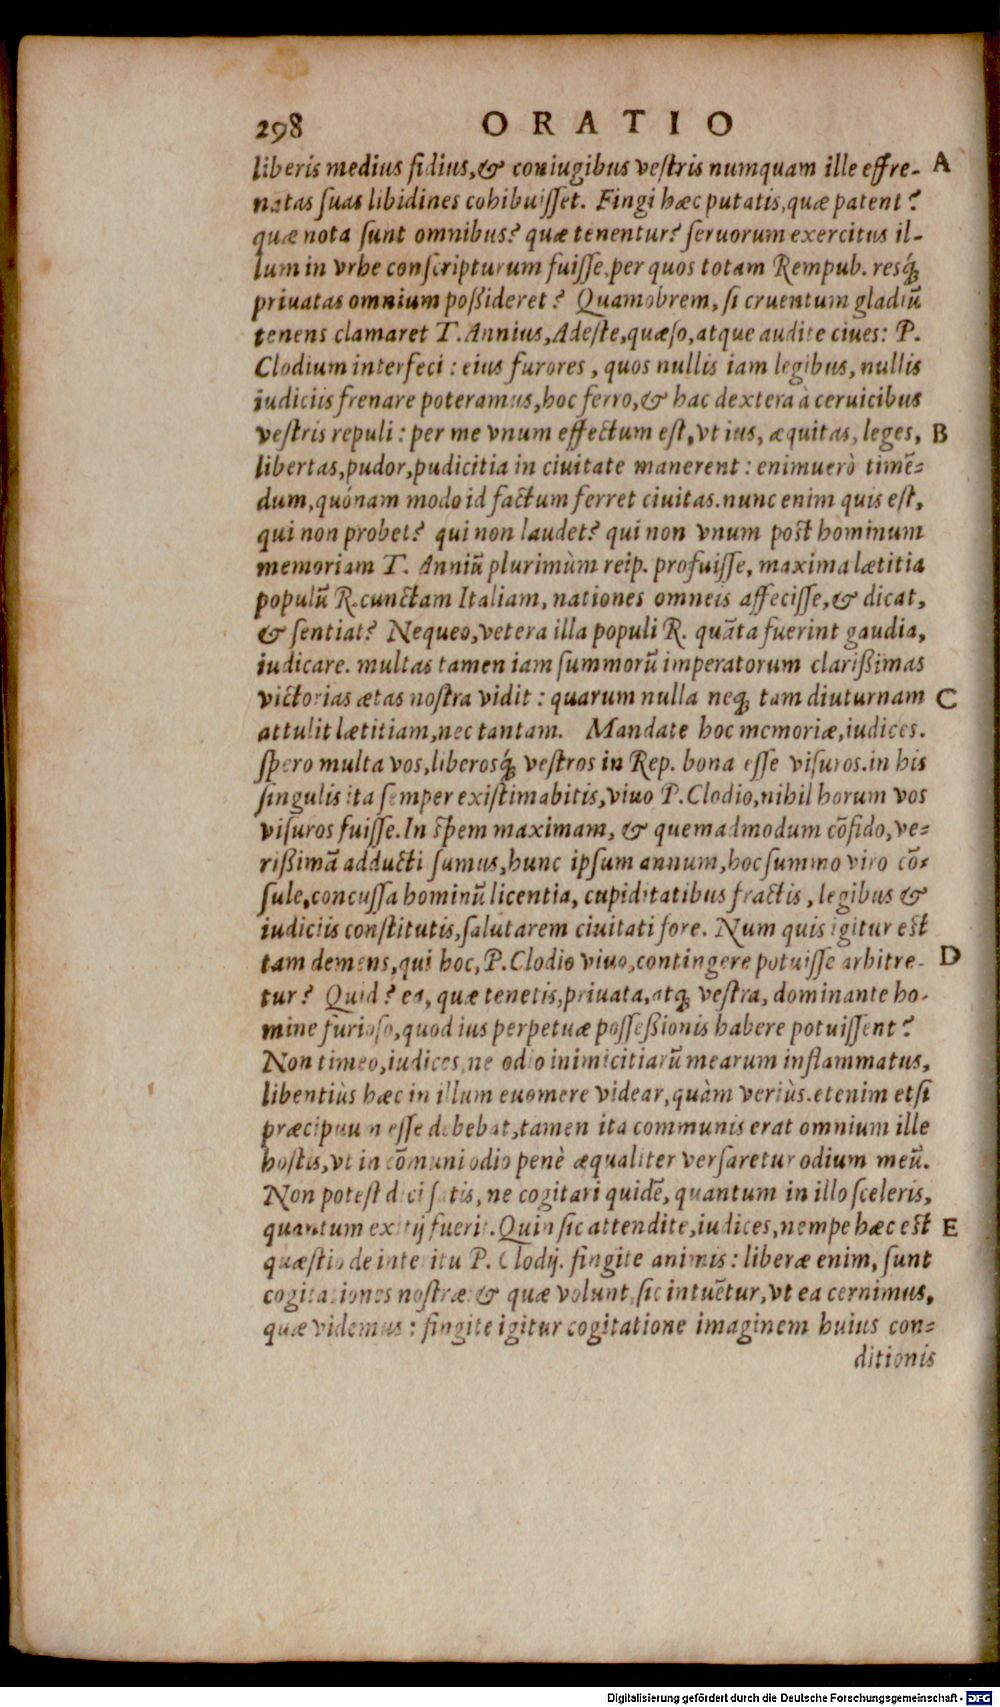 298 ORATIO
liberis medius fidius, & coniugibus vestris numquam ille effre- A
natas suas libidines cohibuisset. Fingi hæc putatis, quæ patent?
quæ nota sunt omnibus? quæ tenentur? seruorum exercitus il-
lum in vrbe conscripturum fuisse, per quos totam Rempub. resq́;
priuatas omnium poßideret? Quamobrem, si cruentum gladiũ
tenens clamaret T. Annius, Adeste, quæso, atque audite ciues: P.
Clodium interfeci: eius furores, quos nullis iam legibus, nullis
iudiciis frenare poteramus, hoc ferro, & hac dextera à ceruicibus
vestris repuli: per me vnum effectum est, vt ius, æquitas, leges, B
libertas, pudor, pudicitia in ciuitate manerent: enimuerò timẽ=
dum, quónam modo id factum ferret ciuitas. nunc enim quis est,
qui non probet? qui non laudet? qui non vnum post hominum
memoriam T. Anniũ plurimùm reip. profuisse, maxima lætitia
populũ R. cunctam Italiam, nationes omneis affecisse, & dicat,
& sentiat? Nequeo, vetera illa populi R. quãta fuerint gaudia,
iudicare. multas tamen iam summorũ imperatorum clarißimas
victorias ætas nostra vidit: quarum nulla neq; tam diuturnam C
attulit lætitiam, nec tantam. Mandate hoc memoriæ, iudices.
spero multa vos, liberosq́; vestros in Rep. bona esse visuros. in his
singulis ita semper existimabitis, viuo P. Clodio, nihil horum vos
visuros fuisse. In spem maximam, & quemadmodum cõfido, ve=
rißimã adducti sumus, hunc ipsum annum, hoc summo viro cõ=
sule, concussa hominũ licentia, cupiditatibus fractis, legibus &
iudiciis constitutis, salutarem ciuitati fore. Num quis igitur est
tam demens, qui hoc, P. Clodio viuo, contingere potuisse arbitre- D
tur? Quid? ea, quæ tenetis, priuata, atq; vestra, dominante ho-
mine furioso, quod ius perpetuæ possesßionis habere potuissent?
Non timeo, iudices, ne odio inimicitiarũ mearum inflammatus,
libentiùs hæc in illum euomere videar, quàm veriùs. etenim etsi
præcipuum esse debebat, tamen ita communis erat omnium ille
hostis, vt in cõmuni odio penè æqualiter versaretur odium meũ.
Non potest dici satis, ne cogitari quidẽ, quantum in illo sceleris,
quantum exitij fuerit. Quin sic attendite, iudices, nempe hæc est E
quæstio de interitu P. Clodij. fingite animis: liberæ enim, sunt
cogitationes nostræ: & quæ volunt, sic intuẽtur, vt ea cernimus,
quæ videmus: fingite igitur cogitatione imaginem huius con=
ditionis
Digitalisierung gefördert durch die Deutsche Forschungsgemeinschaft - DFG